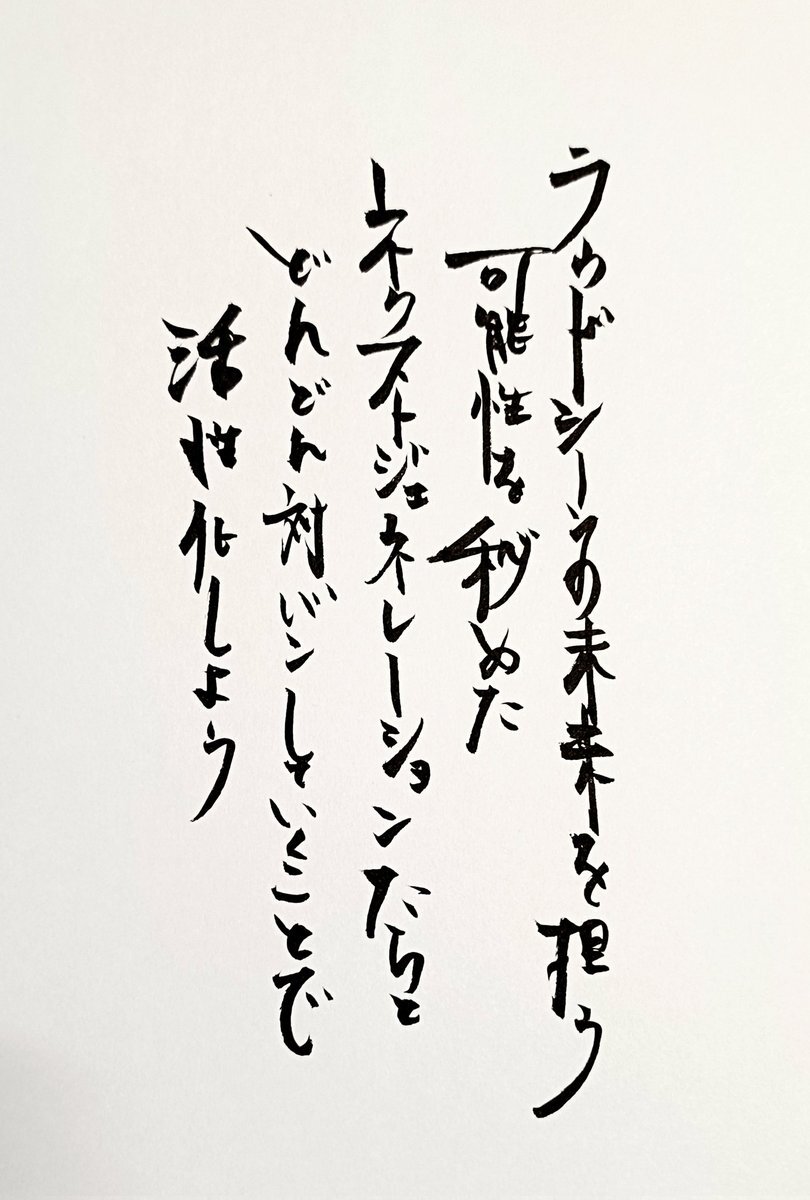 ラウドシーンの未来を担う
可能性を秘めた
ネクストジェネレーションたちと
どんどん対バンしていくことで
活性化しよう